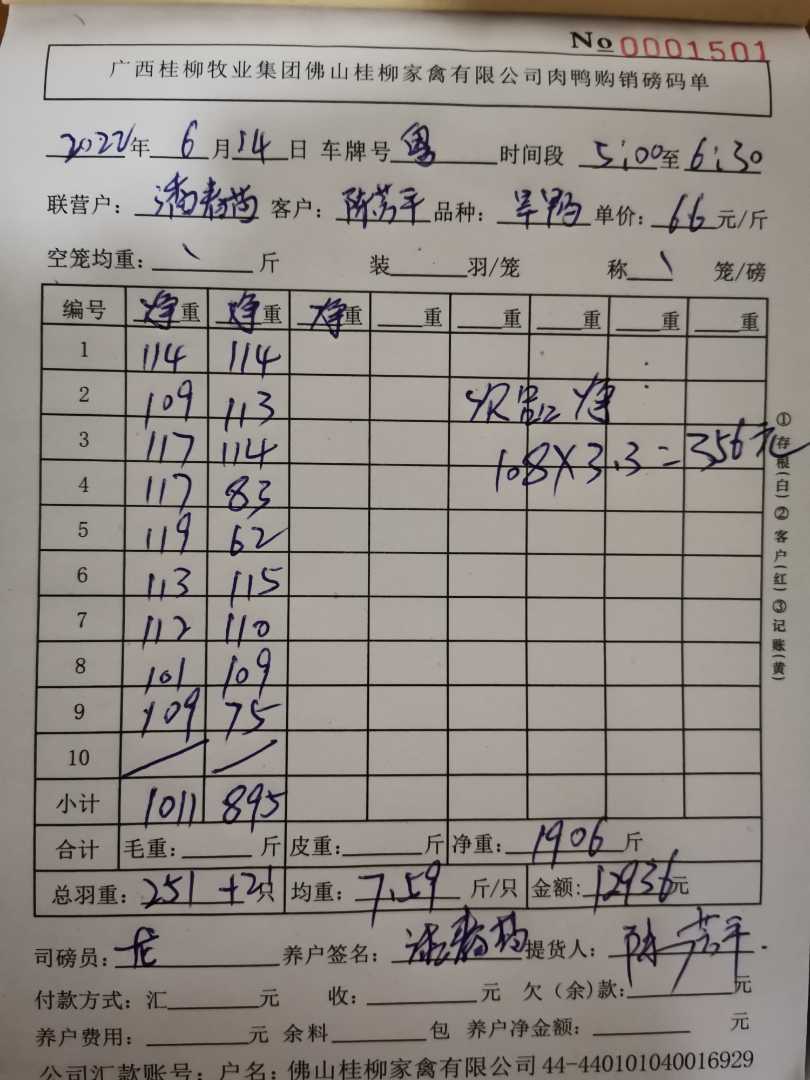 No 0001501
广西桂柳牧业集团佛山桂柳家禽有限公司肉鸭购销磅码单
2022年 6 月 14 日 车牌号 时间段 5:00 至 6:30
联营户: 客户: 陈芳平 品种: 单价: 66 元/斤
空笼均重: 斤 装 羽/笼 称 笼/磅
编号 净重 净重 净重 重 重 重 重 重
1 114 114
2 109 113
3 117 114
108X3.3=356元
4 117 83
5 119 62
6 113 115
7 112 110
8 101 109
9 109 75
10
小计 1011 895
合计 毛重: 斤 皮重: 斤 净重: 1906 斤
总羽重: 251 +2 只 均重: 7.59 斤/只 金额: 12936 元
司磅员: 养户签名: 提货人: 陈芳平
付款方式: 汇 元 收: 元 欠(余)款: 元
养户费用: 元 余料 包 养户净金额: 元
公司汇款账号: 户名: 佛山桂柳家禽有限公司 44-440101040016929
①存根(白)②客户(红)③记账(黄)